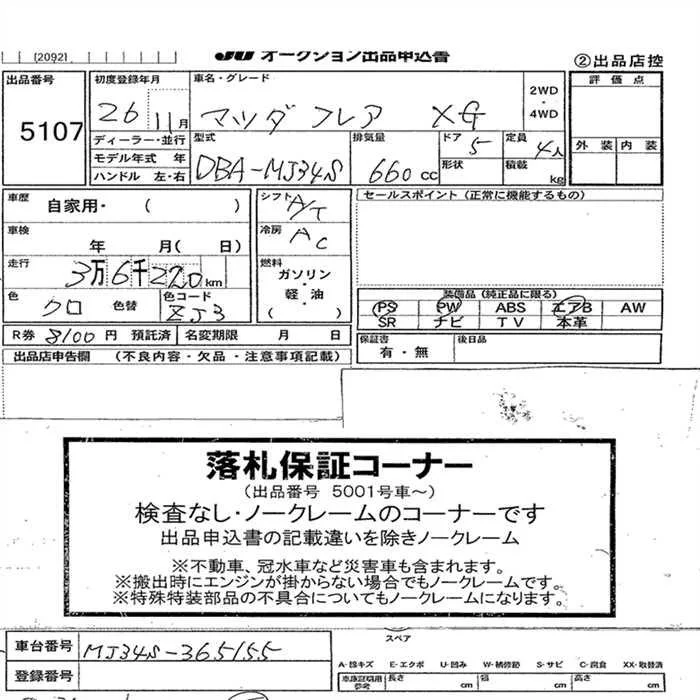 (2092)
JU オークション出品申込書
②出品店控
出品番号
5107
初度登録年月
26 11月
車名・グレード
マツダ フレア XG
2WD
・
4WD
評価点
外装 内装
ディーラー・並行
モデル年式 年
ハンドル 左・右
型式
DBA-MJ34S
排気量
660cc
ドア
5
形状
定員
4人
積載
kg
車歴
自家用・( )
シフト
A/T
セールスポイント (正常に機能するもの)
車検
年 月( 日)
冷房
AC
走行
3万6千220km
燃料
ガソリン
・
軽・油
( )
色
クロ 色替
色コード
ZJ3
装備品 (純正品に限る)
PS PW ABS エアB AW
SR ナビ TV 本革
R券 8100円 預託済
名変期限 月 日
保証書
有・無
後日品
出品店申告欄 (不良内容・欠品・注意事項記載)
落札保証コーナー
(出品番号 5001号車~)
検査なし・ノークレームのコーナーです
出品申込書の記載違いを除きノークレーム
※不動車、冠水車など災害車も含まれます。
※搬出時にエンジンが掛からない場合でもノークレームです。
※特殊特装部品の不具合についてもノークレームになります。
車台番号 MJ34S-365155
登録番号
スペア
A-線キズ E-エクボ U-凹み W-補修跡 S-サビ C-腐食 XX-取替済
車検証明用参考 長さ cm 幅 cm 高さ cm